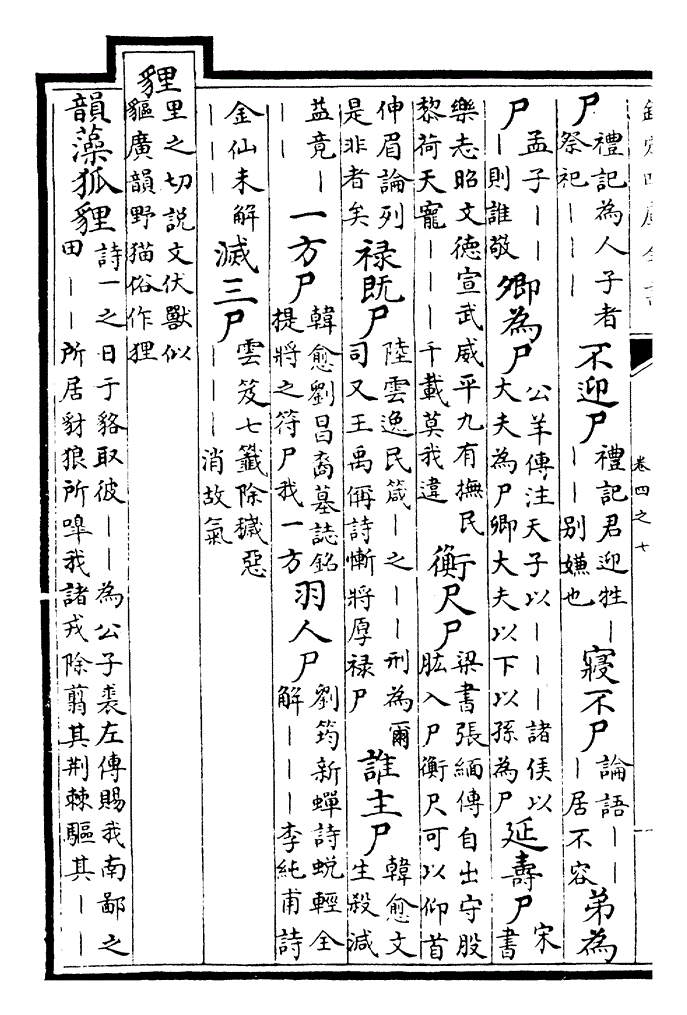 卷四之七
尸 禮記為人子者
祭祀｜｜｜
不迎尸 禮記君迎牲｜
｜｜别嫌也
寢不尸 論語｜｜
｜居不容
弟為
尸 孟子｜｜｜
｜則誰敬
卿為尸 公羊傳注天子以｜｜｜諸侯以
大夫為尸卿大夫以下以孫為尸
延壽尸 宋
書
樂志昭文德宣武威平九有撫民
黎荷天寵｜｜｜千載莫我違
衡尺尸 梁書張緬傳自出守股
肱入尸衡尺可以仰首
伸眉論列
是非者矣
禄既尸 陸雲逸民箴｜之｜｜刑為爾
司又王禹偁詩慚將厚禄尸
誰主尸 韓愈文
生殺減
益竟｜
｜｜
一方尸 韓愈劉昌裔墓誌銘
提將之符尸我一方
羽人尸 劉筠新蟬詩蜕輕全
解｜｜｜李純甫詩
金仙未解
滅三尸 雲笈七籤除穢惡
｜｜｜消故氣
貍
里之切說文伏獸似
貙廣韻野猫俗作狸
韻藻狐貍 詩一之日于貉取彼｜｜為公子裘左傳賜我南鄙之
田｜｜所居豺狼所嘷我諸戎除翦其荆棘驅其｜｜